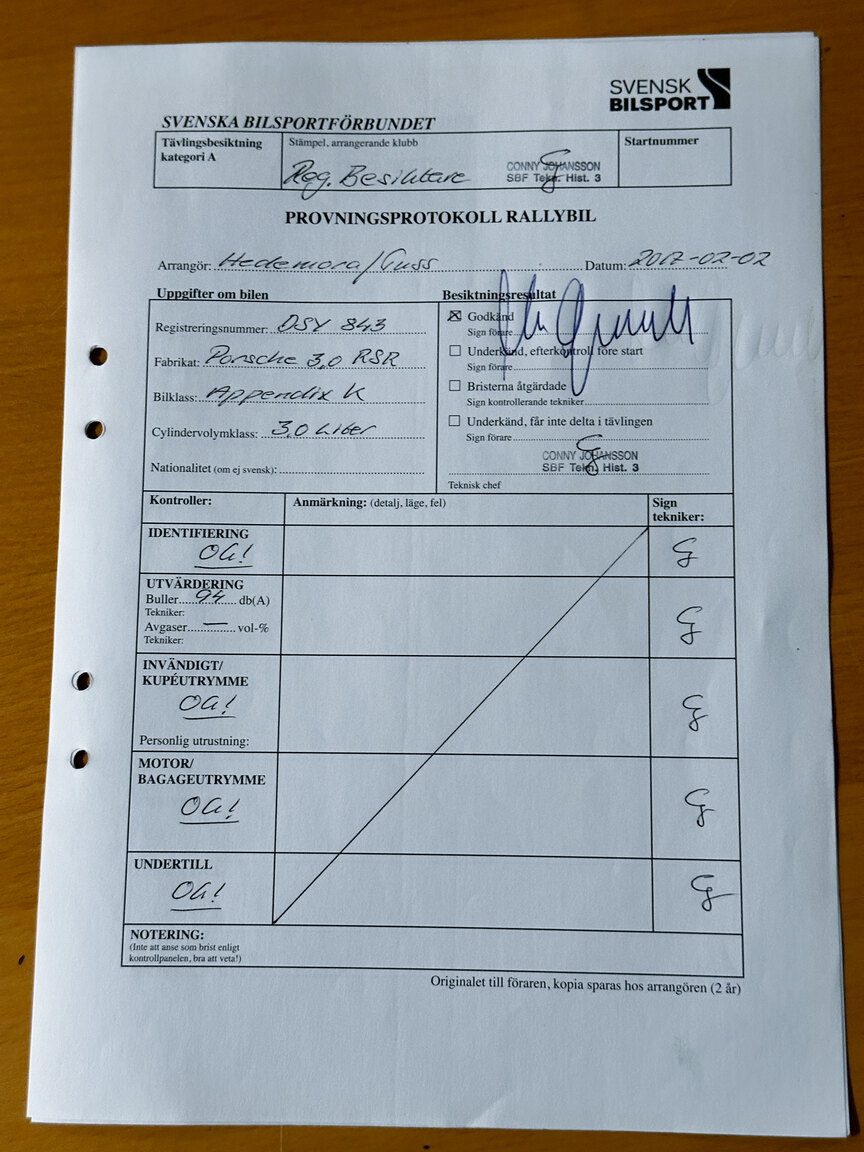 SVENSK
BILSPORT
SVENSKA BILSPORTFÖRBUNDET
Tävlingsbesiktning
kategori A
Stämpel, arrangerande klubb
Reg. Besiktare
CONNY JOHANSSON
SBF Tekn. Hist. 3
Startnummer
PROVNINGSPROTOKOLL RALLYBIL
Arrangör: Hedemora/
Datum: 2017-02-02
Uppgifter om bilen
Registreringsnummer: DSY 843
Fabrikat: Porsche 3,0 RSR
Bilklass: Appendix K
Cylindervolymklass: 3,0 Liter
Nationalitet (om ej svensk):
Besiktningsresultat
Godkänd
Sign förare
Underkänd, efterkontroll före start
Sign förare
Bristerna åtgärdade
Sign kontrollerande tekniker
Underkänd, får inte delta i tävlingen
Sign förare
CONNY JOHANSSON
SBF Tekn. Hist. 3
Teknisk chef
Kontroller:
Anmärkning: (detalj, läge, fel)
Sign
tekniker:
IDENTIFIERING
OK!
UTVÄRDERING
Buller 94 db(A)
Tekniker:
Avgaser — vol-%
Tekniker:
INVÄNDIGT/
KUPÉUTRYMME
OK!
Personlig utrustning:
MOTOR/
BAGAGEUTRYMME
OK!
UNDERTILL
OK!
NOTERING:
(Inte att anse som brist enligt
kontrollpanelen, bra att veta!)
Originalet till föraren, kopia sparas hos arrangören (2 år)